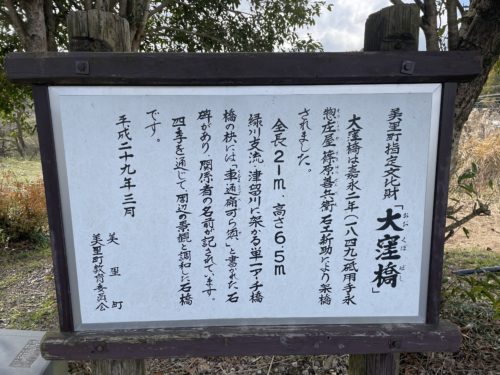 美里町指定文化財「大窪橋」
おおくぼばし
大窪橋は嘉永二年(一八四九)砥用手永
惣庄屋篠原善兵衛石工新助により架橋
されました。
全長21m、高さ6.5m
緑川支流・津留川に架かる単一アーチ橋
橋の袂には「車通禰可ら須」と書かれた石
碑があり、関係者の名前が記されています。
四季を通じて、周辺の景観と調和した石橋
です。
平成二十九年三月
美里町
美里町教育委員会